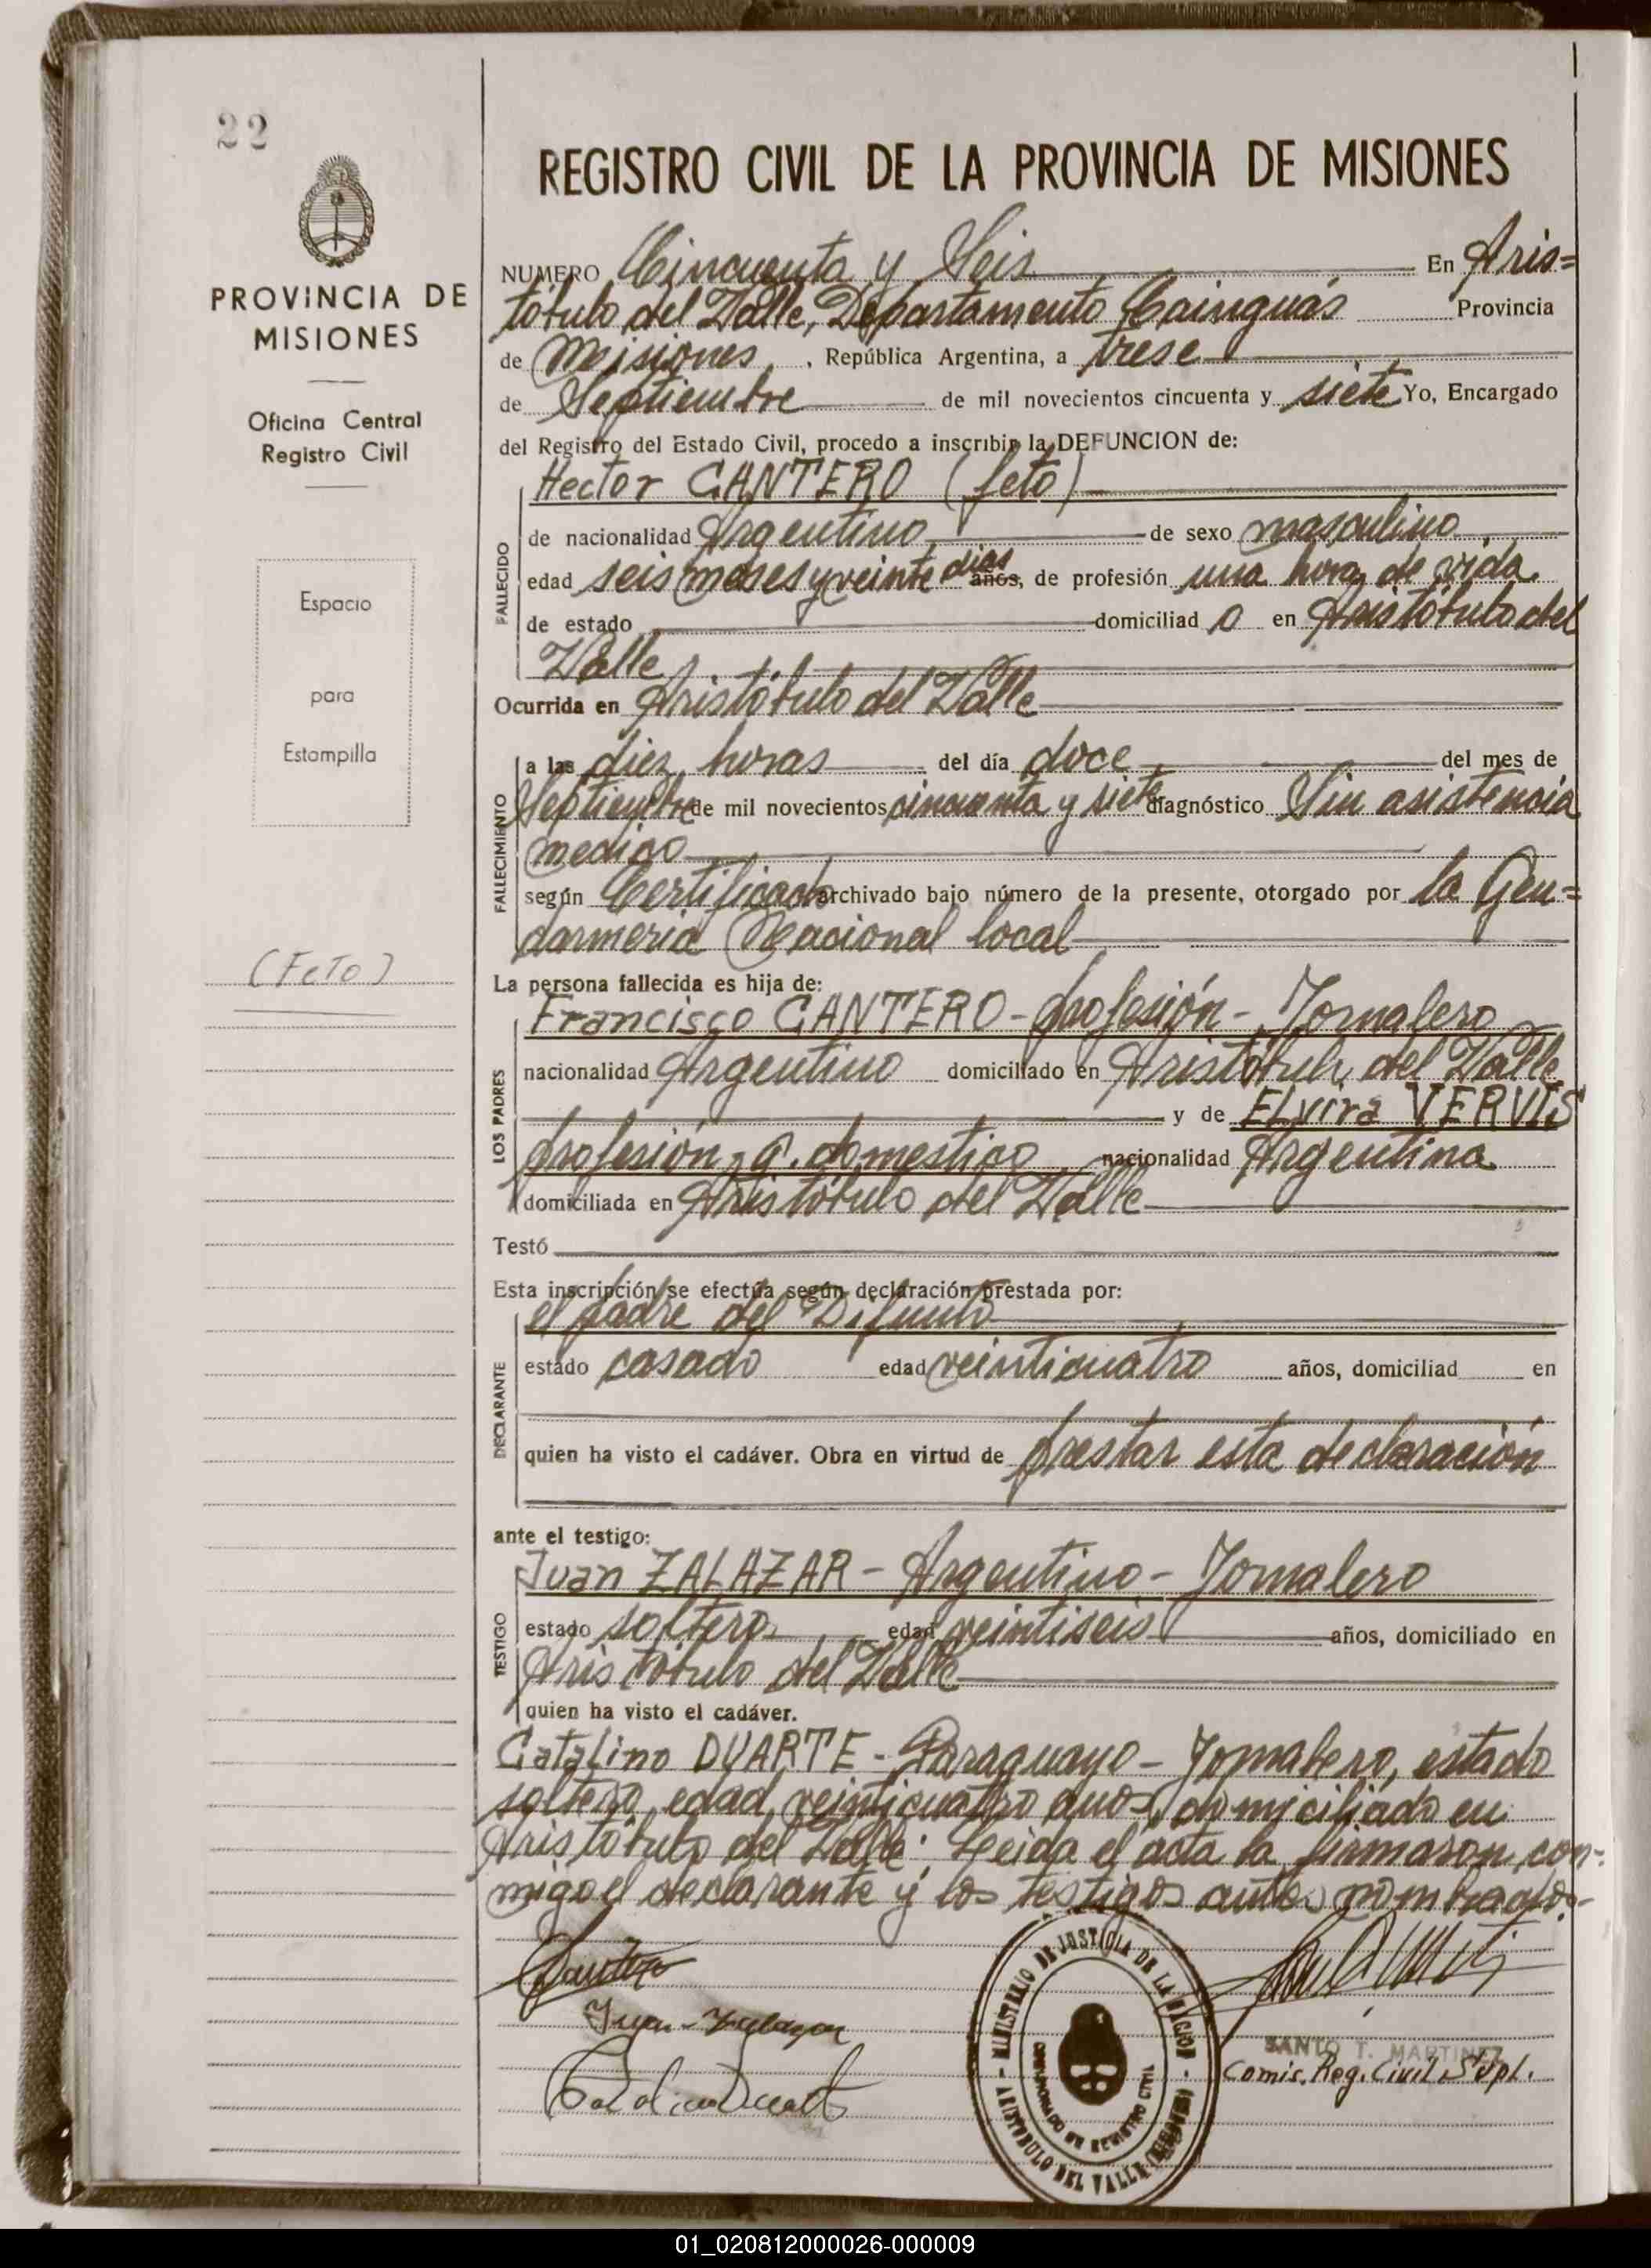 22
PROVINCIA DE
MISIONES
Oficina Central
Registro Civil
Espacio
para
Estampilla
(FeTo)
REGISTRO CIVIL DE LA PROVINCIA DE MISIONES
NUMERO Cincuenta y Seis En Aris=
tóbulo del Valle, Departamento Cainguás Provincia
de Misiones, República Argentina, a trese
de Septiembre de mil novecientos cincuenta y siete Yo, Encargado
del Registro del Estado Civil, procedo a inscribir la DEFUNCION de:
Hector CANTERO (feto)
FALLECIDO
de nacionalidad Argentino de sexo masculino
edad seis meses y veinte dias años, de profesión una hora de vida
de estado domiciliad o en Aristóbulo del
Valle
Ocurrida en Aristóbulo del Valle
FALLECIMIENTO
a las diez horas del día doce del mes de
Septiembre de mil novecientos cincuenta y siete diagnóstico Sin asistencia
medico
según Certificado archivado bajo número de la presente, otorgado por la Gen=
darmeria Nacional local
La persona fallecida es hija de:
LOS PADRES
Francisco CANTERO - profesión - Jornalero
nacionalidad Argentino domiciliado en Aristóbulo del Valle
y de Elvira VERVIS
profesión q. domestico nacionalidad Argentina
domiciliada en Aristóbulo del Valle
Testó
Esta inscripción se efectúa según declaración prestada por:
DECLARANTE
el padre del Difunto
estado casado edad veinticuatro años, domiciliad en
quien ha visto el cadáver. Obra en virtud de prestar esta declaración
ante el testigo:
TESTIGO
Juan ZALAZAR - Argentino - Jornalero
estado soltero edad veintiseis años, domiciliado en
Aristóbulo del Valle
quien ha visto el cadáver.
Catalino DUARTE - Paraguayo - Jornalero, estado
soltero, edad veinticuatro años, domiciliado en
Aristóbulo del Valle; Leida el acta la firmaron con-
migo el declarante y los testigos antes nombrados.-
Cantero
Juan - Zalazar
MINISTERIO DE JUSTICIA DE LA NACION
ARISTOBULO DEL VALLE (MISIONES)
SANTO T. MARTINEZ
Comis. Reg. Civil Supl.
01_020812000026-000009